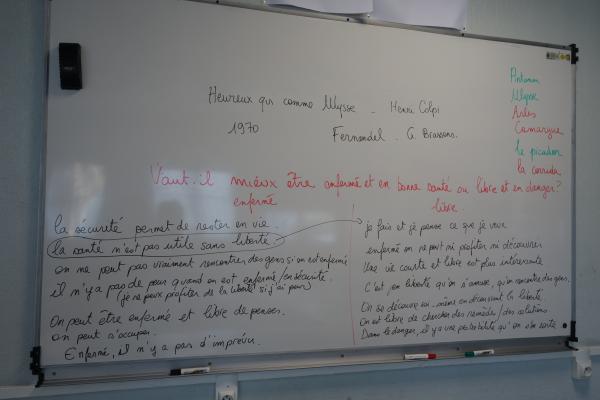 Heureux qui comme Ulysse - Henri Colpi
1970 Fernandel. G. Brassens.
Antonin
Ulysse
Arles
Camargue
le picador
la corrida
Vaut-il mieux être enfermé et en bonne santé ou libre et en danger?
enfermé
la sécurité permet de rester en vie.
la santé n'est pas utile sans liberté
on ne peut pas vraiment rencontrer des gens si on est enfermé
il n'y a pas de peur quand on est enfermé / en sécurité.
(je ne peux profiter de la liberté si j'ai peur)
On peut être enfermé et libre de penser.
on peut s'occuper.
Enfermé, il n'y a pas d'imprévu.
libre.
je fais et je pense ce que je veux
enfermé on ne peut ni profiter ni découvrir
Une vie courte et libre est plus intéressante
C'est en liberté qu'on s'amuse, qu'on rencontre des gens.
On se découvre soi-même en découvrant la liberté.
On est libre de chercher des remèdes / des solutions
Dans le danger, il y a une possibilité qu'on s'en sorte